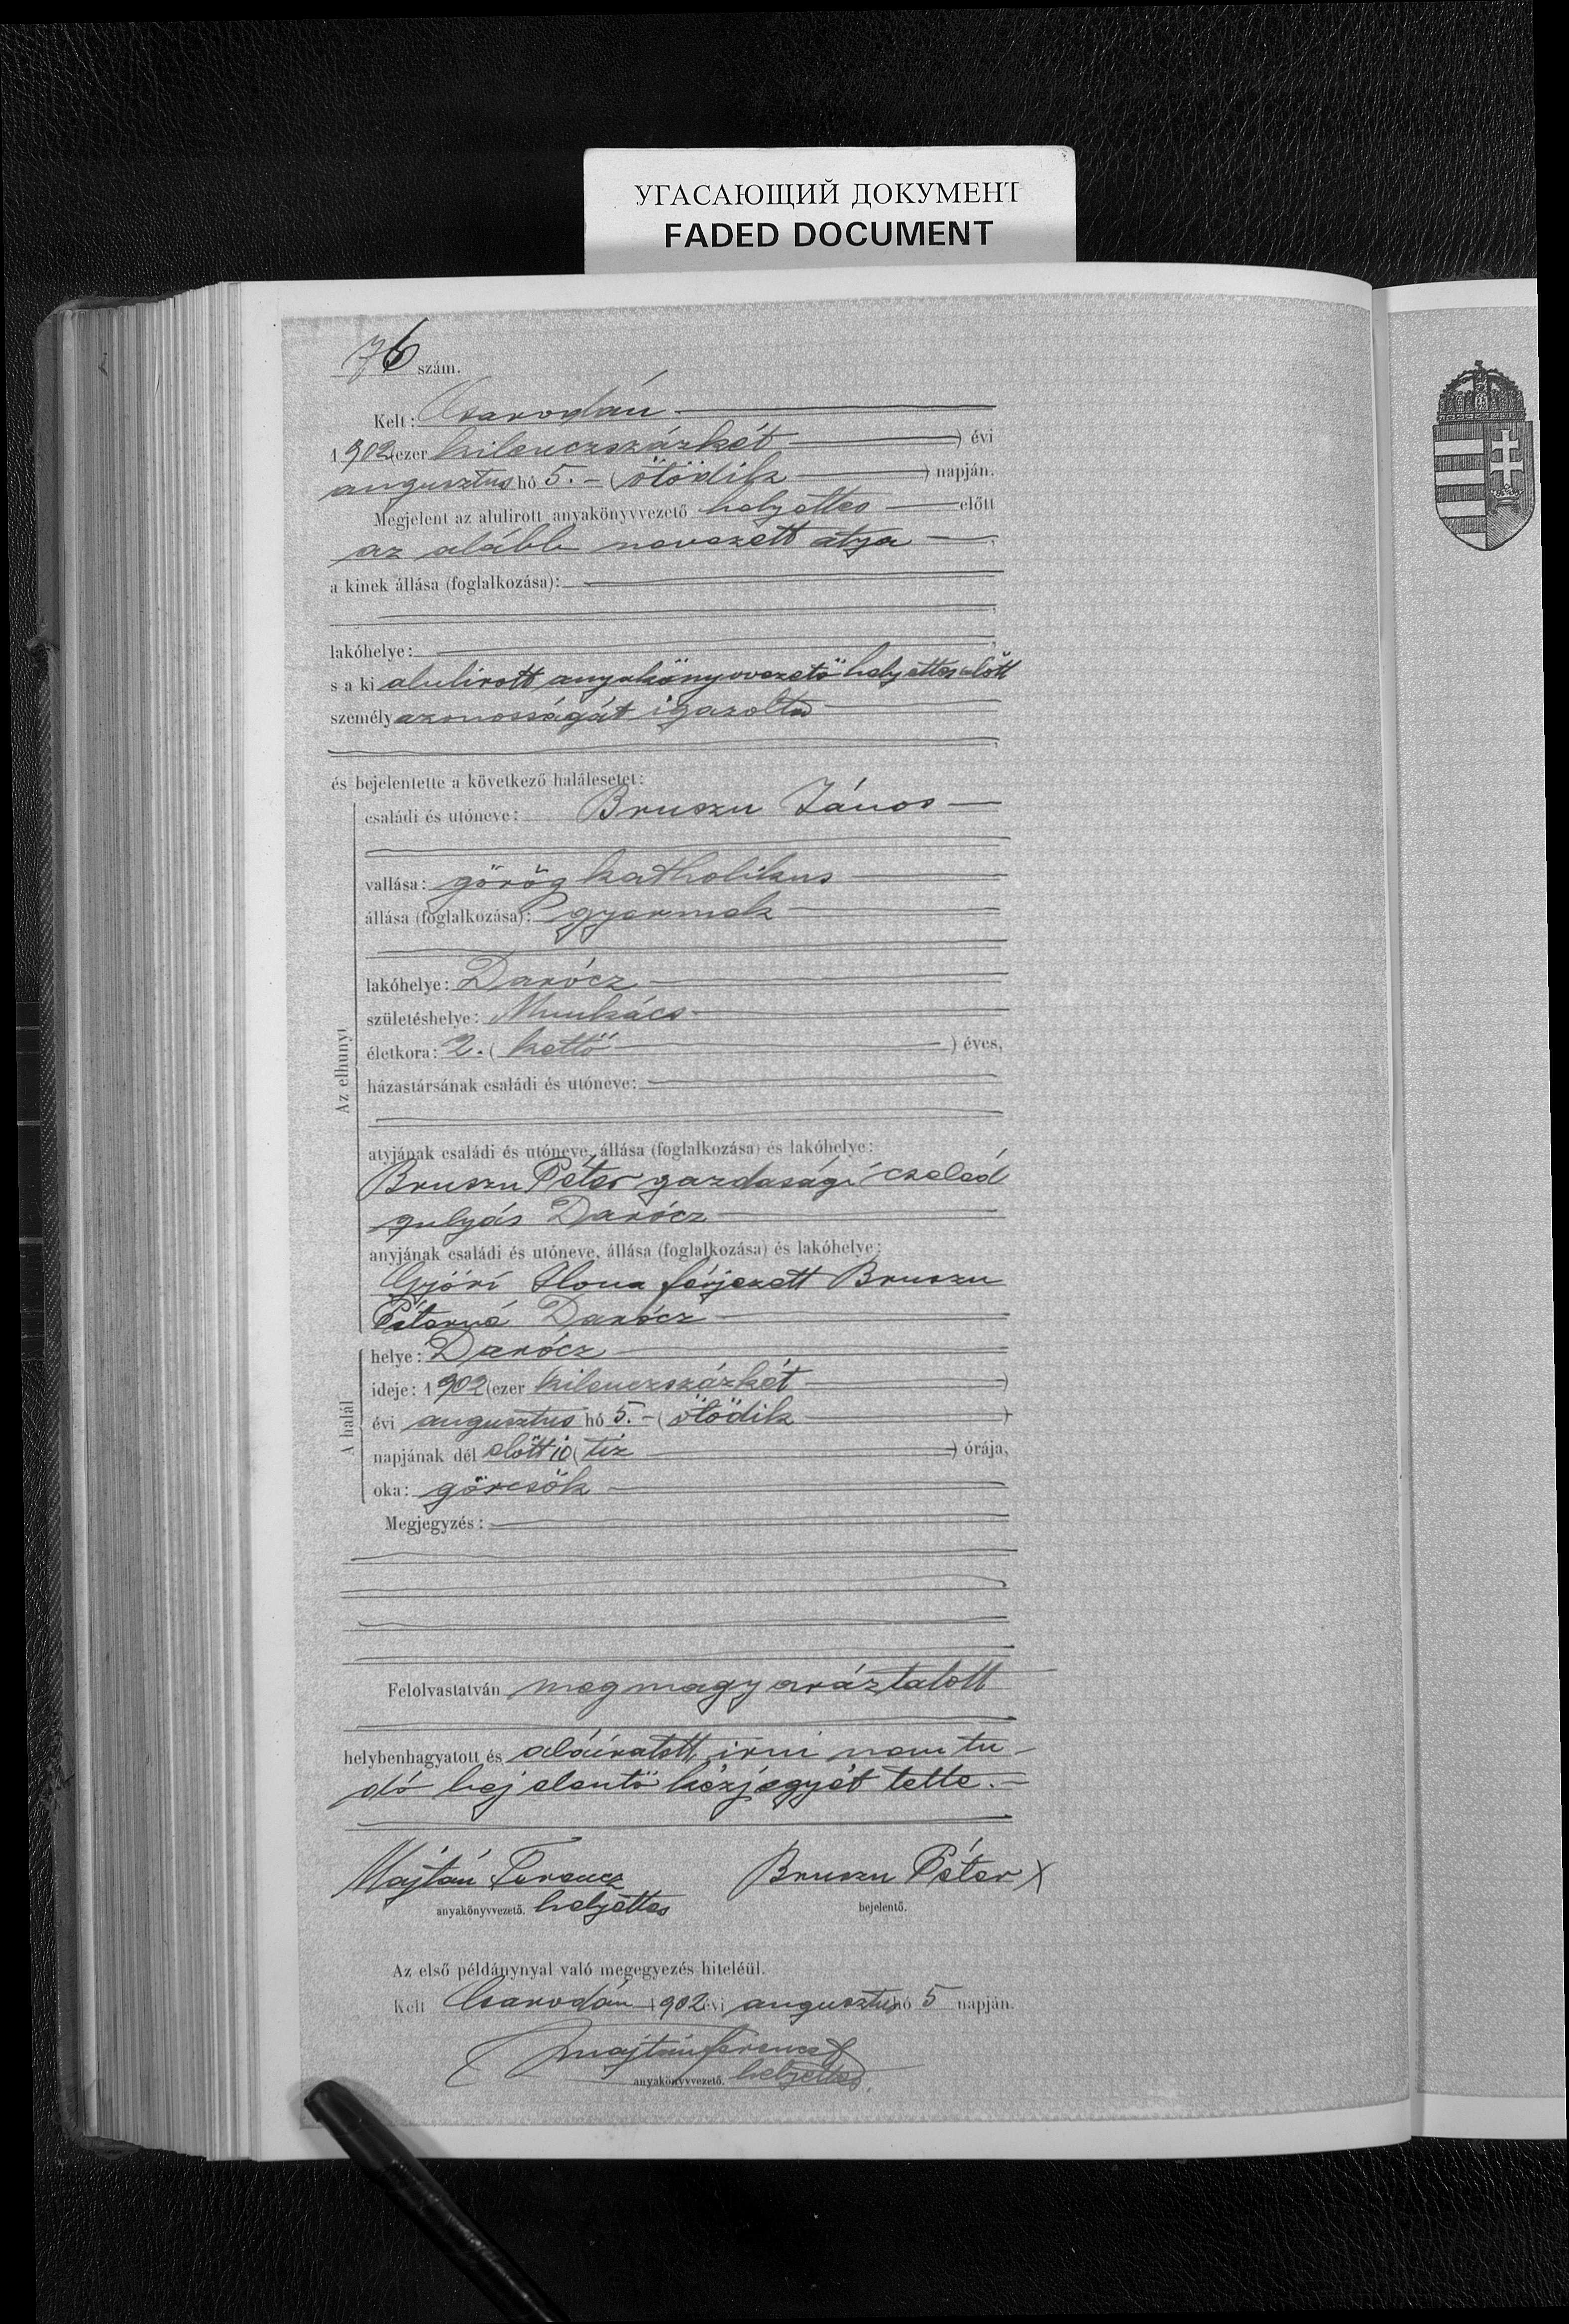 УГАСАЮЩИЙ ДОКУМЕНТ
FADED DOCUMENT
76 szám.
Kelt: Csarodán
1902 (ezer kilenczszázkét ) évi
augusztus hó 5. - (ötödik ) napján.
Megjelent az alulirott anyakönyvvezető helyettes előtt
az alább nevezett atya ,
a kinek állása (foglalkozása):
lakóhelye:
s a ki alulirott anyakönyvvezető helyettes előtt
személyazonosságát igazolta
és bejelentette a következő halálesetet:
Az elhunyt
családi és utóneve: Bruszu János
vallása: görög katholikus
állása (foglalkozása): gyermek
lakóhelye: Darócz
születéshelye: Munkács
életkora: 2. ( kettő ) éves,
házastársának családi és utóneve:
atyjának családi és utóneve, állása (foglalkozása) és lakóhelye:
Bruszu Péter gazdasági cseléd
gulyás Darócz
anyjának családi és utóneve, állása (foglalkozása) és lakóhelye:
Győri Ilona férjezett Bruszu
Péterné Darócz
A halál
helye: Darócz
ideje: 1902 (ezer kilenczszázkét )
évi augusztus hó 5. - (ötödik )
napjának dél előtt 10 (tiz ) órája,
oka: görcsök
Megjegyzés:
Felolvastatván megmagyaráztatott
helybenhagyatott és aláiratott, irni nem tu-
dó bejelentő kézjegyét tette. -
Majtán Ferencz Bruszu Péter X
anyakönyvvezető. helyettes bejelentő.
Az első példánynyal való megegyezés hiteléül.
Kelt Csarodán 1902 évi augusztus hó 5 napján.
Majtán Ferencz
anyakönyvvezető. helyettes.